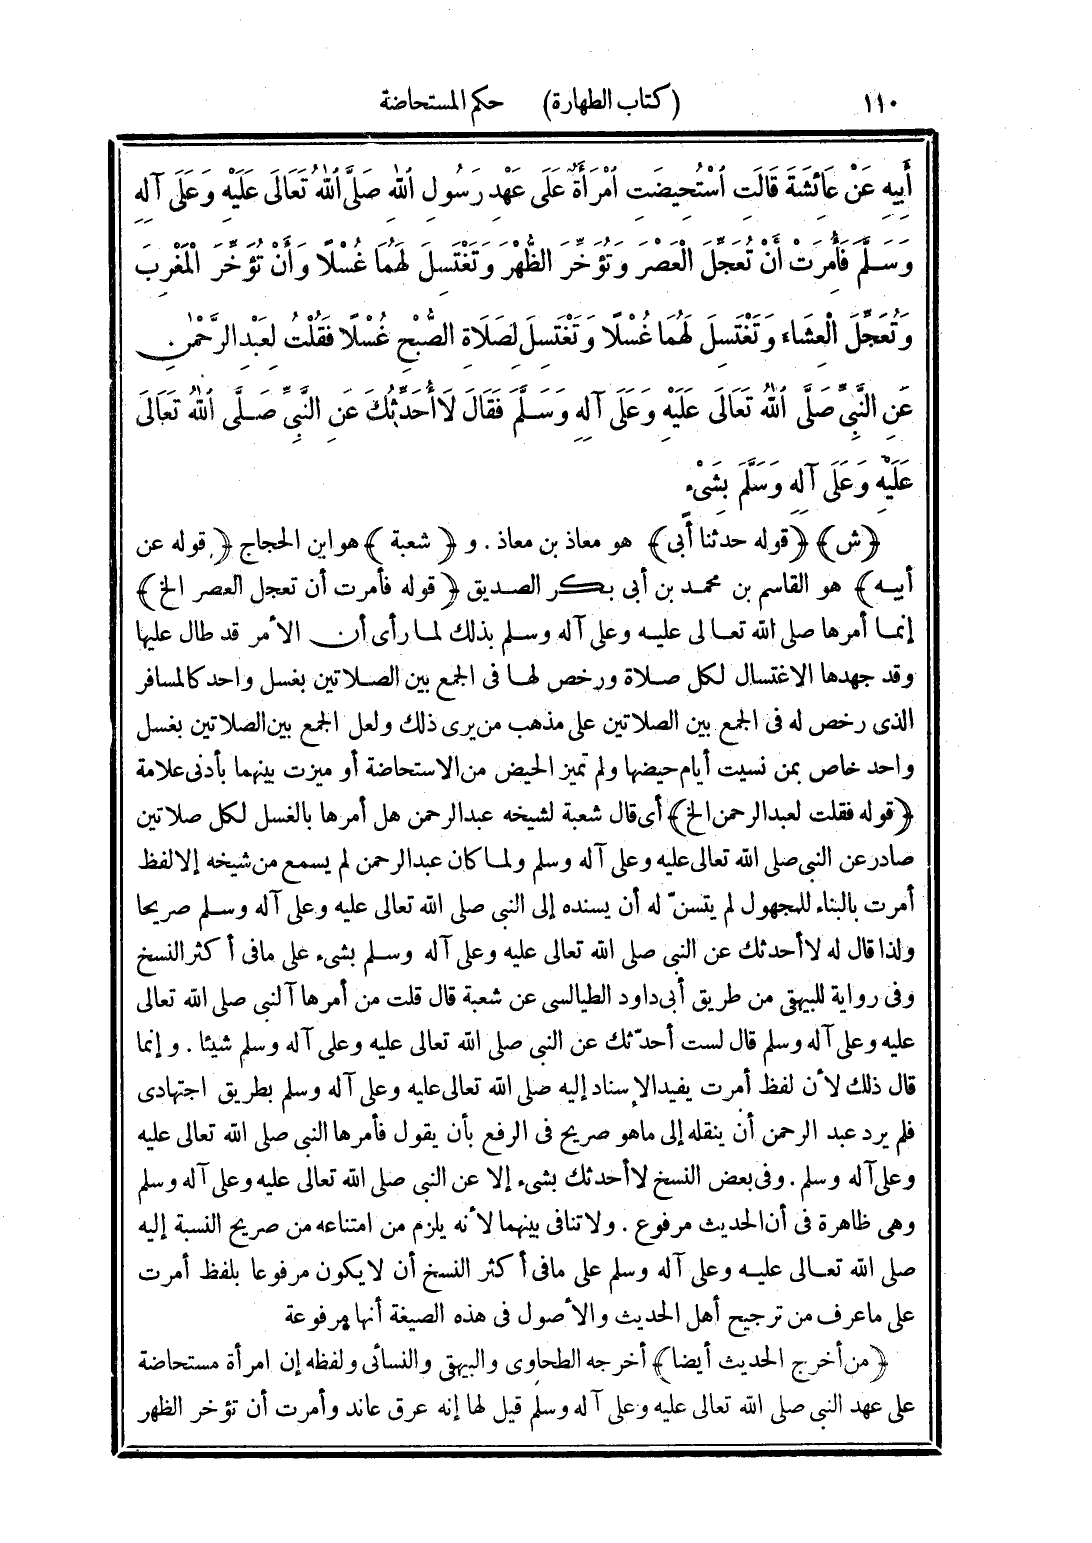 ١١٠ (كتاب الطهارة) حكم المستحاضة
أَبِيهِ عَنْ عَائِشَةَ قَالَتِ اُسْتُحِيضَتِ اُمْرَأَةٌ عَلَى عَهْدِ رَسُولِ اللهِ صَلَّى اللهُ تَعَالَى عَلَيْهِ وَعَلَى آلِهِ
وَسَلَّمَ فَأُمِرَتْ أَنْ تُعَجِّلَ الْعَصْرَ وَتُؤَخِّرَ الظُّهْرَ وَتَغْتَسِلَ لَهُمَا غُسْلًا وَأَنْ تُؤَخِّرَ الْمَغْرِبَ
وَتُعَجِّلَ الْعِشَاءَ وَتَغْتَسِلَ لَهُمَا غُسْلًا وَتَغْتَسِلَ لِصَلَاةِ الصُّبْحِ غُسْلًا فَقُلْتُ لِعَبْدِ الرَّحْمٰنِ
عَنِ النَّبِيِّ صَلَّى اللهُ تَعَالَى عَلَيْهِ وَعَلَى آلِهِ وَسَلَّمَ فَقَالَ لَا أُحَدِّثُكَ عَنِ النَّبِيِّ صَلَّى اللهُ تَعَالَى
عَلَيْهِ وَعَلَى آلِهِ وَسَلَّمَ بِشَيْءٍ
﴿ش﴾ ﴿قوله حدثنا أبى﴾ هو معاذ بن معاذ . و ﴿شعبة﴾ هو ابن الحجاج ﴿قوله عن
أبيـه﴾ هو القاسم بن محمد بن أبى بكر الصديق ﴿قوله فأمرت أن تعجل العصر الخ﴾
إنما أمرها صلى الله تعالى عليه وعلى آله وسلم بذلك لما رأى أن الأمر قد طال عليها
وقد جهدها الاغتسال لكل صلاة ورخص لها فى الجمع بين الصلاتين بغسل واحد كالمسافر
الذى رخص له فى الجمع بين الصلاتين على مذهب من يرى ذلك ولعل الجمع بين الصلاتين بغسل
واحد خاص بمن نسيت أيام حيضها ولم تميز الحيض من الاستحاضة أو ميزت بينهما بأدنى علامة
﴿قوله فقلت لعبد الرحمن الخ﴾ أى قال شعبة لشيخه عبد الرحمن هل أمرها بالغسل لكل صلاتين
صادر عن النبى صلى الله تعالى عليه وعلى آله وسلم ولما كان عبد الرحمن لم يسمع من شيخه إلا لفظ
أمرت بالبناء للمجهول لم يتسنّ له أن يسنده إلى النبى صلى الله تعالى عليه وعلى آله وسلم صريحا
ولذا قال له لا أحدثك عن النبى صلى الله تعالى عليه وعلى آله وسلم بشىء على مافى أكثر النسخ
وفى رواية للبيهقى من طريق أبى داود الطيالسى عن شعبة قال قلت من أمرها آلنبى صلى الله تعالى
عليه وعلى آله وسلم قال لست أحدّثك عن النبى صلى الله تعالى عليه وعلى آله وسلم شيئا . وإنما
قال ذلك لأن لفظ أمرت يفيد الإسناد إليه صلى الله تعالى عليه وعلى آله وسلم بطريق اجتهادى
فلم يرد عبد الرحمن أن ينقله إلى ماهو صريح فى الرفع بأن يقول فأمرها النبى صلى الله تعالى عليه
وعلى آله وسلم . وفى بعض النسخ لا أحدثك بشىء إلا عن النبى صلى الله تعالى عليه وعلى آله وسلم
وهى ظاهرة فى أن الحديث مرفوع . ولا تنافى بينهما لأنه يلزم من امتناعه من صريح النسبة إليه
صلى الله تعالى عليه وعلى آله وسلم على مافى أكثر النسخ أن لا يكون مرفوعا بلفظ أمرت
على ماعرف من ترجيح أهل الحديث والأصول فى هذه الصيغة أنها مرفوعة
﴿من أخرج الحديث أيضا﴾ أخرجه الطحاوى والبيهقى والنسائى ولفظه إن امرأة مستحاضة
على عهد النبى صلى الله تعالى عليه وعلى آله وسلم قيل لها إنه عرق عاند وأمرت أن تؤخر الظهر